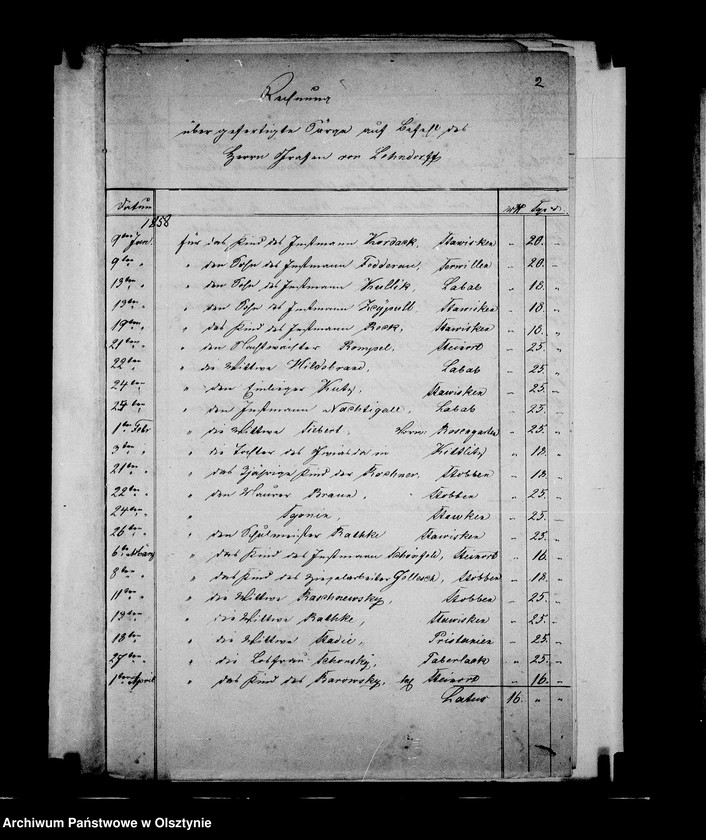 2
Rechnung
über gefertigte Särge auf Befehl des
Herrn Grafen von Lehndorff
Datum rtl Sgr d.
1858
9ten Jan. für das Kind des Instmann Kordack, Stawisken - 20. -
9ten " " den Sohn des Instmann Fedderau, - 20. -
13ten " " den Sohn des Instmann Kullik, Labab - 18. -
13ten " " den Sohn des Instmann Stawisken - 18. -
19ten " " das Kind des Instmann Rock, Stawisken - 16. -
21ten " " den Nachtwächter Rompel, Steinort - 25. -
22ten " " die Wittwe Hildebrand, Labab - 25. -
24ten " " den Stawisken - 25. -
25ten " " den Instmann Nachtigall, Labab - 25. -
1ten Febr " die Wittwe Siebert, Vorw. Rosengarten - 25. -
3ten " " die Tochter des in Kittlitz - 18. -
21ten " " das 3jährige Kind der Stobben - 18. -
22ten " " den Maurer Braun, Stobben - 25. -
24ten " " - 25. -
26ten " " den Schulmeister Rathke Stawisken - 25. -
6ten März " das Kind des Instmann Schönfeld, Steinort " 16. -
8ten " " das Kind des Ziegelarbeiter Stobben " 18. -
11ten " " die Wittwe Rachnewsky, Stobben - 25. -
13ten " " die Wittwe Rathke, Stawisken - 25. -
18ten " " die Wittwe Pristanien - 25. -
27ten " " die Losfrau Taberlack " 25. -
1ten April " das Kind des Barowsky, Steinort " 16. -
Latus 16. " "
Archiwum Państwowe w Olsztynie